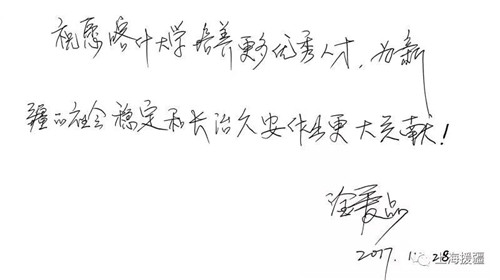 祝愿喀什大学培养更多优秀人才，为新
疆的社会稳定和长治久安作出更大贡献！
2017.11.28
上海援疆